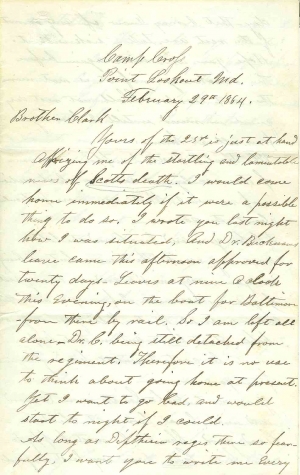 Camp Cross
Point Lookout Md.
February 29th 1864.
Brother Clark
Yours of the 23d is just at hand
apprizing me of the startling and lamentable
news of Scotts death. I would come
home immediately if it were a possible
thing to do so. I wrote you last night
how I was situated. And Dr.
leave came this afternoon approved for
twenty days. Leaves at nine o clock
this evening, on the boat for Baltimore
from there by rail. So I am left all
alone - Dr. C. being still detached from
the regiment. Therefore it is no use
to think about going home at present.
Yet I want to go bad, and would
start to night if I could.
As long as Diptheria rages there so fear-
fully, I want you to write me every